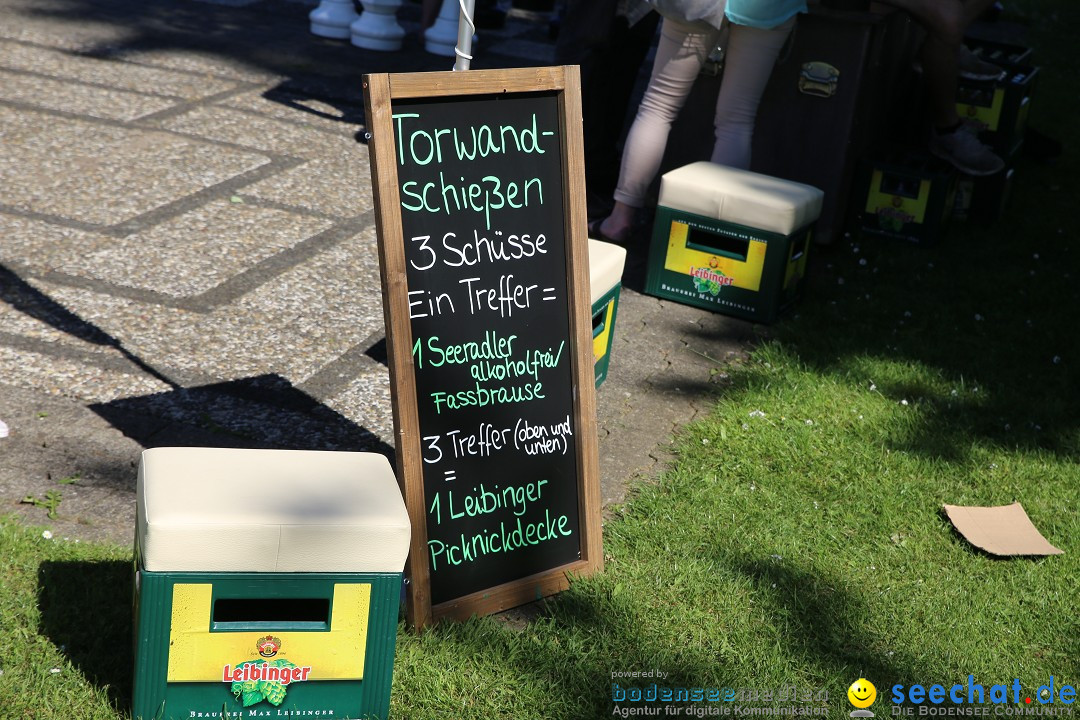 Torwand-
schießen
3 Schüsse
Ein Treffer =
1 Seeradler
alkoholfrei/
Fassbrause
3 Treffer (oben und
unten)
=
1 Leibinger
Picknickdecke
Leibinger
Brauerei Max Leibinger
Leibinger
Brauerei Max Leibinger
powered by
bodenseemedien
Agentur für digitale Kommunikation
seechat.de
Die Bodensee Community